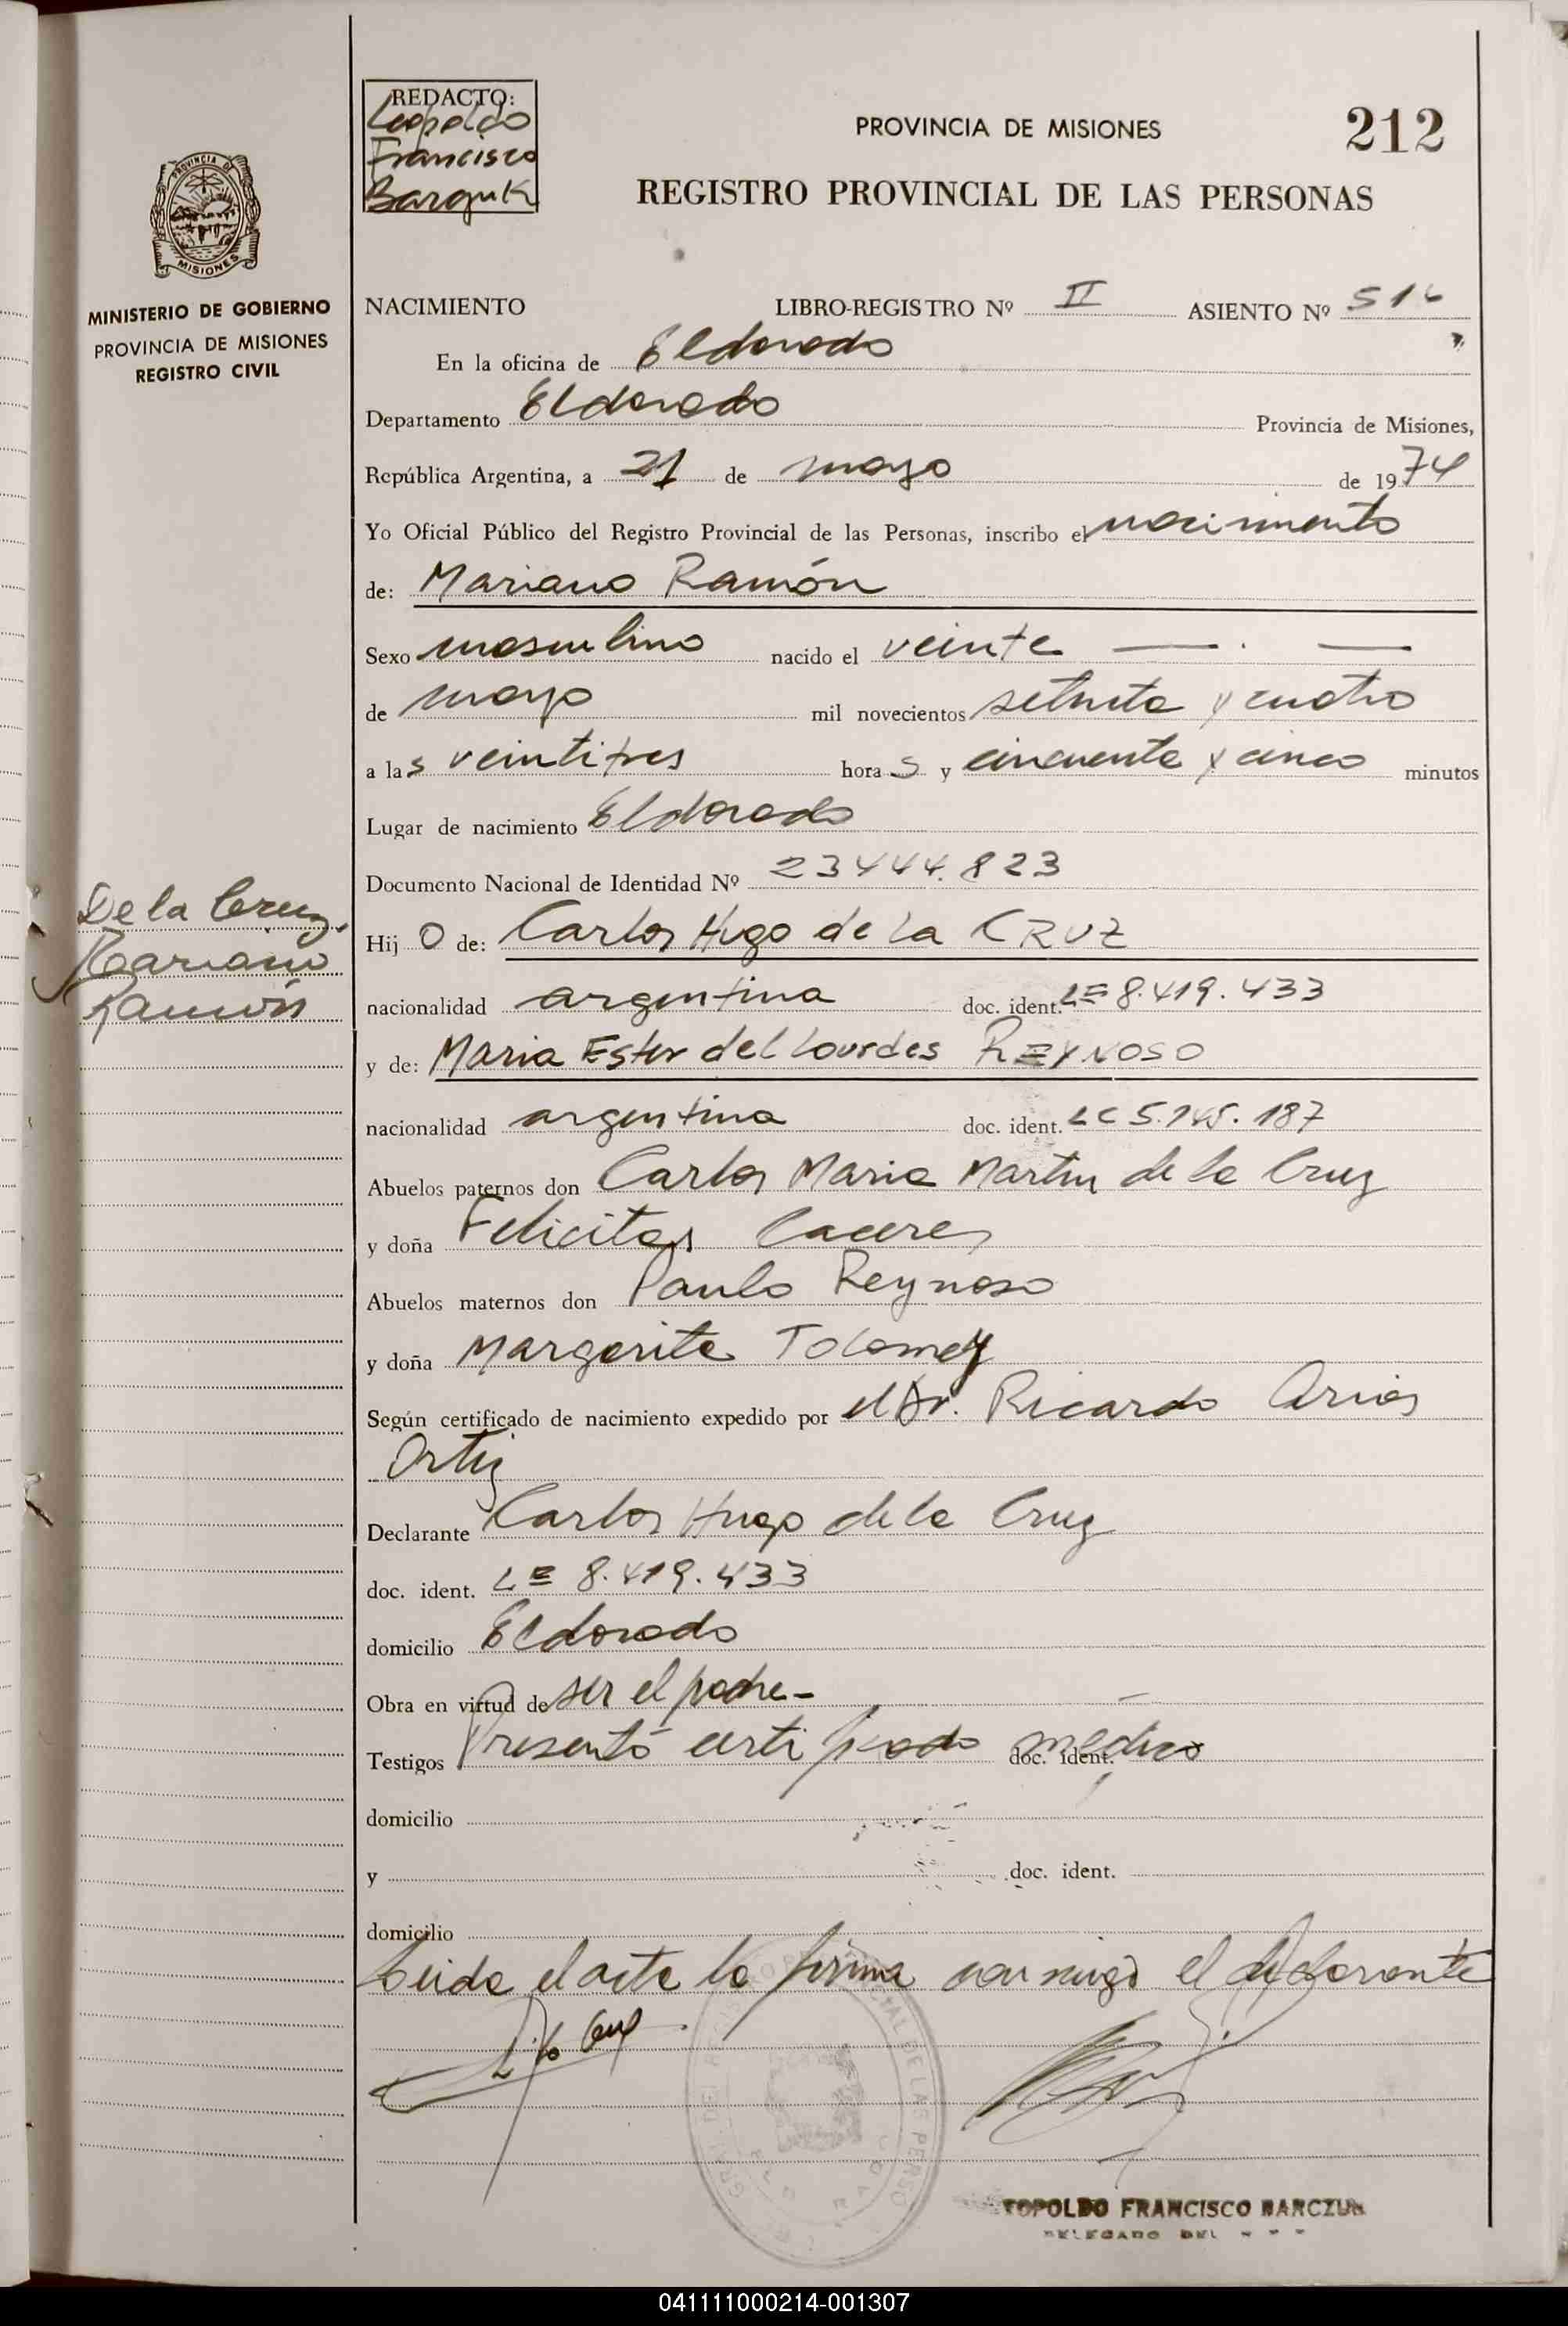 REDACTO:
Leopoldo
Francisco
PROVINCIA DE MISIONES
212
REGISTRO PROVINCIAL DE LAS PERSONAS
PROVINCIA DE
MISIONES
MINISTERIO DE GOBIERNO
PROVINCIA DE MISIONES
REGISTRO CIVIL
NACIMIENTO LIBRO-REGISTRO Nº II ASIENTO Nº
En la oficina de Eldorado
Departamento Eldorado Provincia de Misiones,
República Argentina, a 21 de mayo de 1974
Yo Oficial Público del Registro Provincial de las Personas, inscribo el nacimiento
de: Mariano Ramón
Sexo masculino nacido el veinte
de mayo mil novecientos setenta y cuatro
a las veintitres horas y cincuenta y cinco minutos
Lugar de nacimiento Eldorado
Documento Nacional de Identidad Nº 23444.823
De la Cruz.
Mariano
Ramón
Hijo de: Carlos Hugo de la CRUZ
nacionalidad argentina doc. ident. LE 8.419.433
y de: Maria Ester del Lourdes REYNOSO
nacionalidad argentina doc. ident. LC 5.145.187
Abuelos paternos don Carlos Maria Martin de la Cruz
y doña Felicitas Caceres
Abuelos maternos don Paulo Reynoso
y doña Margarita
Según certificado de nacimiento expedido por el Dr. Ricardo Arias
Ortiz
Declarante Carlos Hugo de la Cruz
doc. ident. LE 8.419.433
domicilio Eldorado
Obra en virtud de ser el padre-
Testigos Presentó certificado médico doc. ident.
domicilio
y doc. ident.
domicilio
Leida el acta la firma conmigo el declarante
FRANCISCO
DELEGADO DEL
041111000214-001307